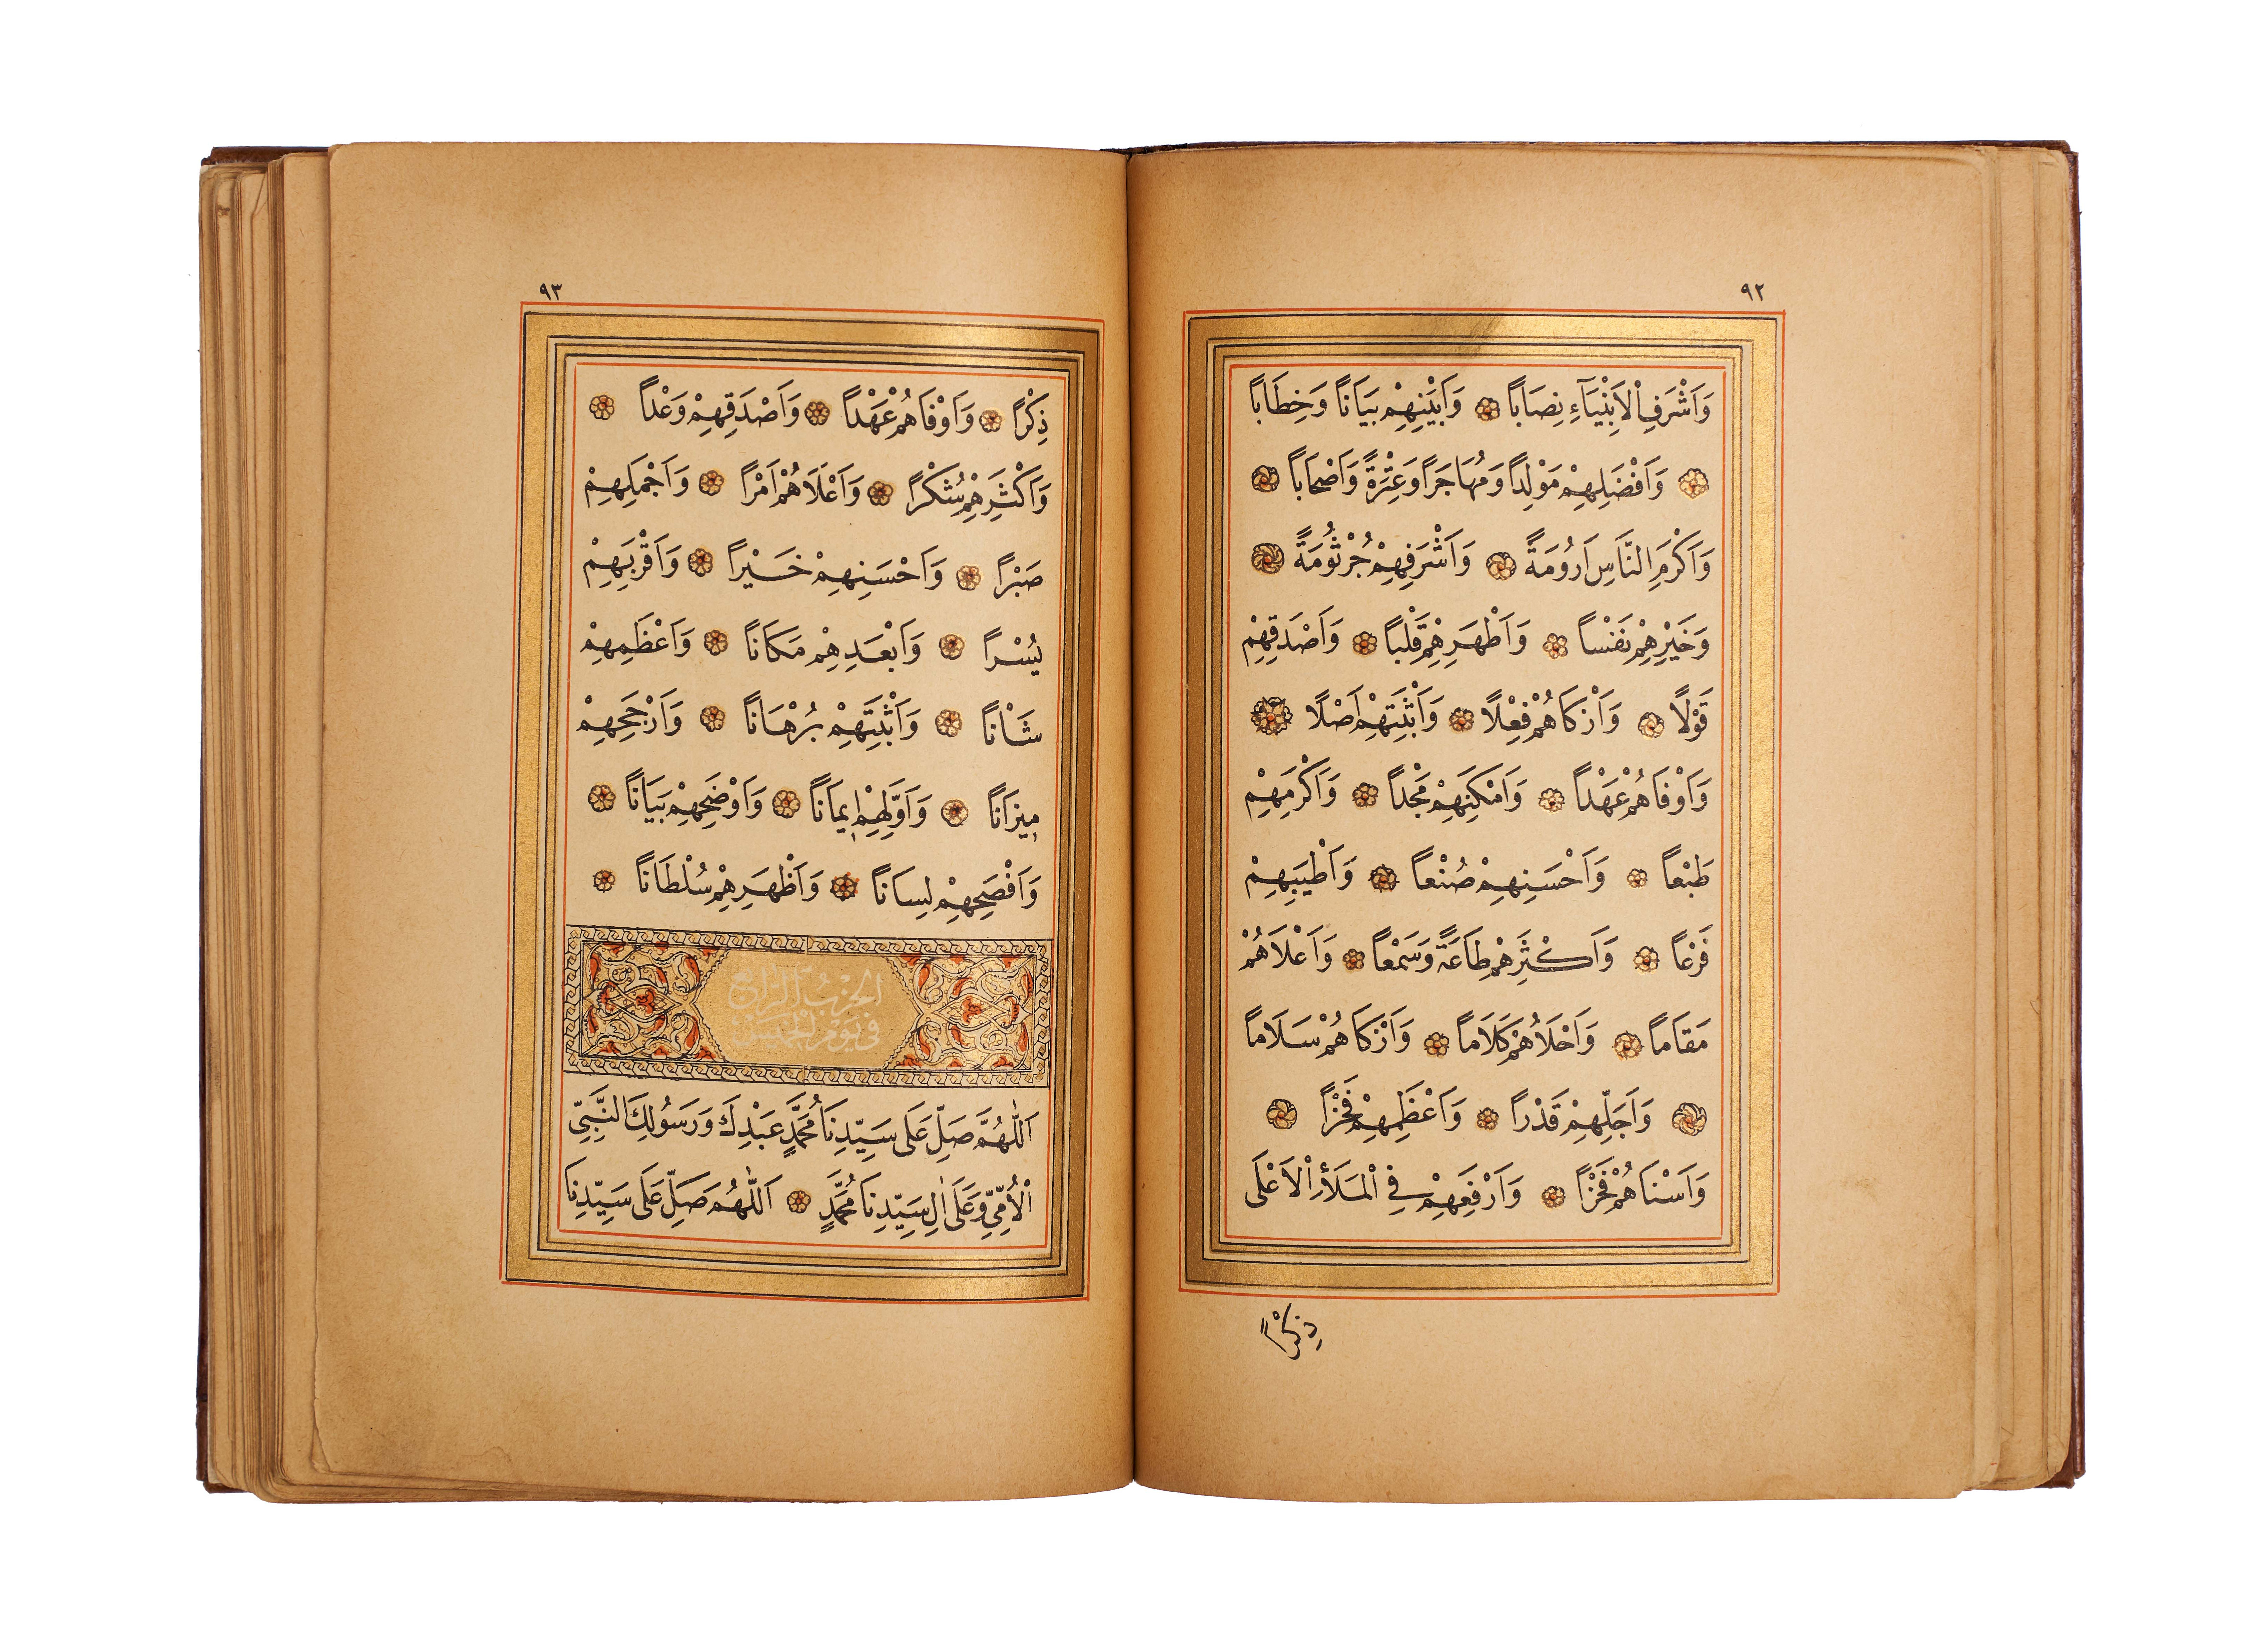 ٩٢
وَاَشْرَفِ الْاَنْبِيَآءِ نِصَاباً وَاَبْيَنِهِمْ بَيَاناً وَخِطَاباً
وَاَفْضَلِهِمْ مَوْلِداً وَمُهَاجَراً وَعِتْرَةً وَاَصْحَاباً
وَاَكْرَمِ النَّاسِ اَرُومَةً وَاَشْرَفِهِمْ جُرْثُومَةً
وَخَيْرِهِمْ نَفْساً وَاَطْهَرِهِمْ قَلْباً وَاَصْدَقِهِمْ
قَوْلًا وَاَزْكَاهُمْ فِعْلًا وَاَثْبَتِهِمْ اَصْلًا
وَاَوْفَاهُمْ عَهْداً وَاَمْكَنِهِمْ مَجْداً وَاَكْرَمِهِمْ
طَبْعاً وَاَحْسَنِهِمْ صُنْعاً وَاَطْيَبِهِمْ
فَرْعاً وَاَكْثَرِهِمْ طَاعَةً وَسَمْعاً وَاَعْلَاهُمْ
مَقَاماً وَاَحْلَاهُمْ كَلَاماً وَاَزْكَاهُمْ سَلَاماً
وَاَجَلِّهِمْ قَدْراً وَاَعْظَمِهِمْ فَخْراً
وَاَسْنَاهُمْ فَخْراً وَاَرْفَعِهِمْ فِي الْمَلَأِ الْاَعْلَى
ذِكْراً
٩٣
ذِكْراً وَاَوْفَاهُمْ عَهْداً وَاَصْدَقِهِمْ وَعْداً
وَاَكْثَرِهِمْ شُكْراً وَاَعْلَاهُمْ اَمْراً وَاَجْمَلِهِمْ
صَبْراً وَاَحْسَنِهِمْ خَيْراً وَاَقْرَبِهِمْ
يُسْراً وَاَبْعَدِهِمْ مَكَاناً وَاَعْظَمِهِمْ
شَاْناً وَاَثْبَتِهِمْ بُرْهَاناً وَاَرْجَحِهِمْ
مِيزَاناً وَاَوَّلِهِمْ اِيمَاناً وَاَوْضَحِهِمْ بَيَاناً
وَاَفْصَحِهِمْ لِسَاناً وَاَظْهَرِهِمْ سُلْطَاناً
الحزب الرابع
في يوم الخميس
اَللّٰهُمَّ صَلِّ عَلَى سَيِّدِنَا مُحَمَّدٍ عَبْدِكَ وَرَسُولِكَ النَّبِيِّ
الْاُمِّيِّ وَعَلَى اٰلِ سَيِّدِنَا مُحَمَّدٍ اَللّٰهُمَّ صَلِّ عَلَى سَيِّدِنَا